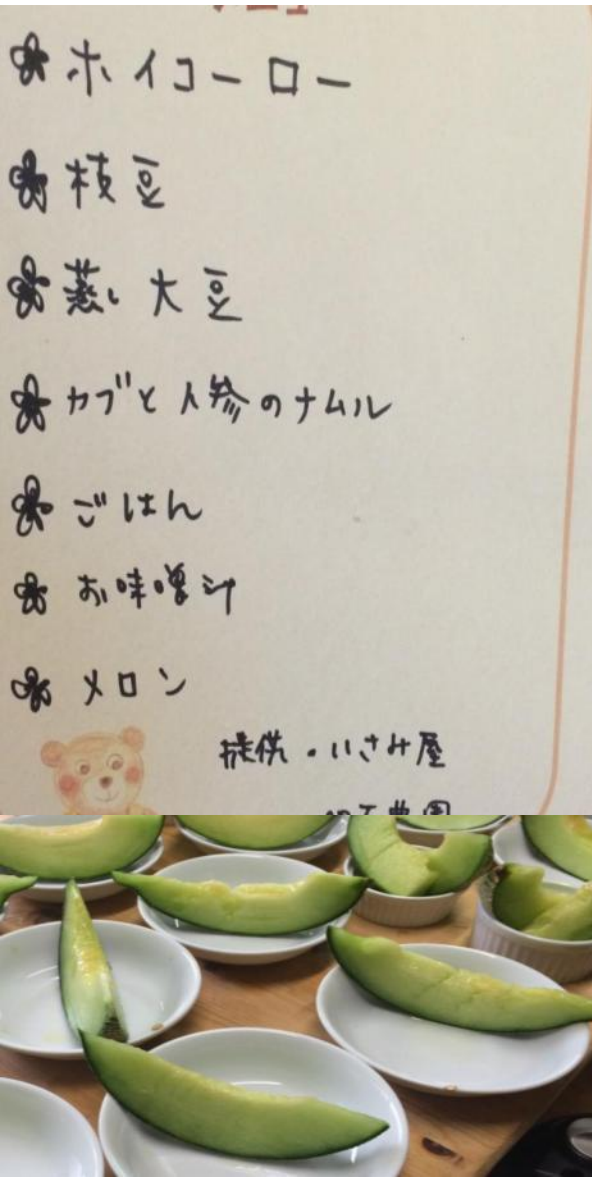 ホイコーロー
枝豆
蒸し大豆
カブと人参のナムル
ごはん
お味噌汁
メロン
提供・いさみ屋